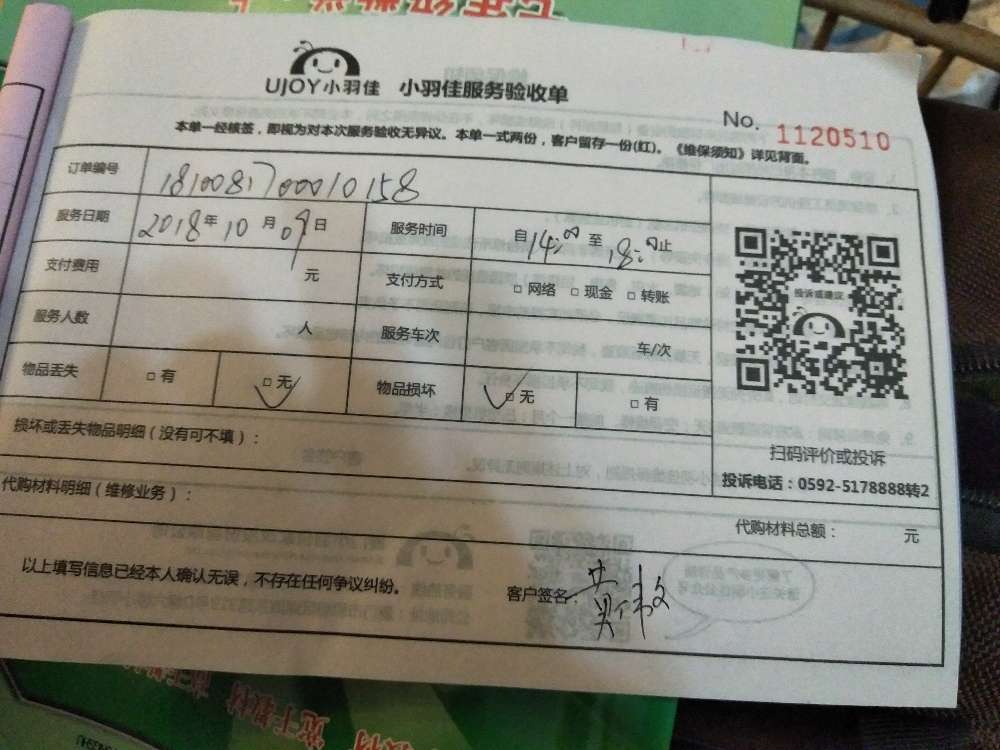 UJOY小羽佳 小羽佳服务验收单
No. 1120510
本单一经核签，即视为对本次服务验收无异议。本单一式两份，客户留存一份(红)。《维保须知》详见背面。
订单编号 1810081700010158
服务日期 2018年10月09日 服务时间 自14:00至18:00止
支付费用 元 支付方式 □ 网络 □ 现金 □ 转账
服务人数 人 服务车次 车/次
物品丢失 □ 有 □ 无 物品损坏 □ 无 □ 有
投诉或建议
损坏或丢失物品明细（没有可不填）：
扫码评价或投诉
投诉电话：0592-5178888转2
代购材料明细（维修业务）：
代购材料总额： 元
以上填写信息已经本人确认无误，不存在任何争议纠纷。
客户签名：